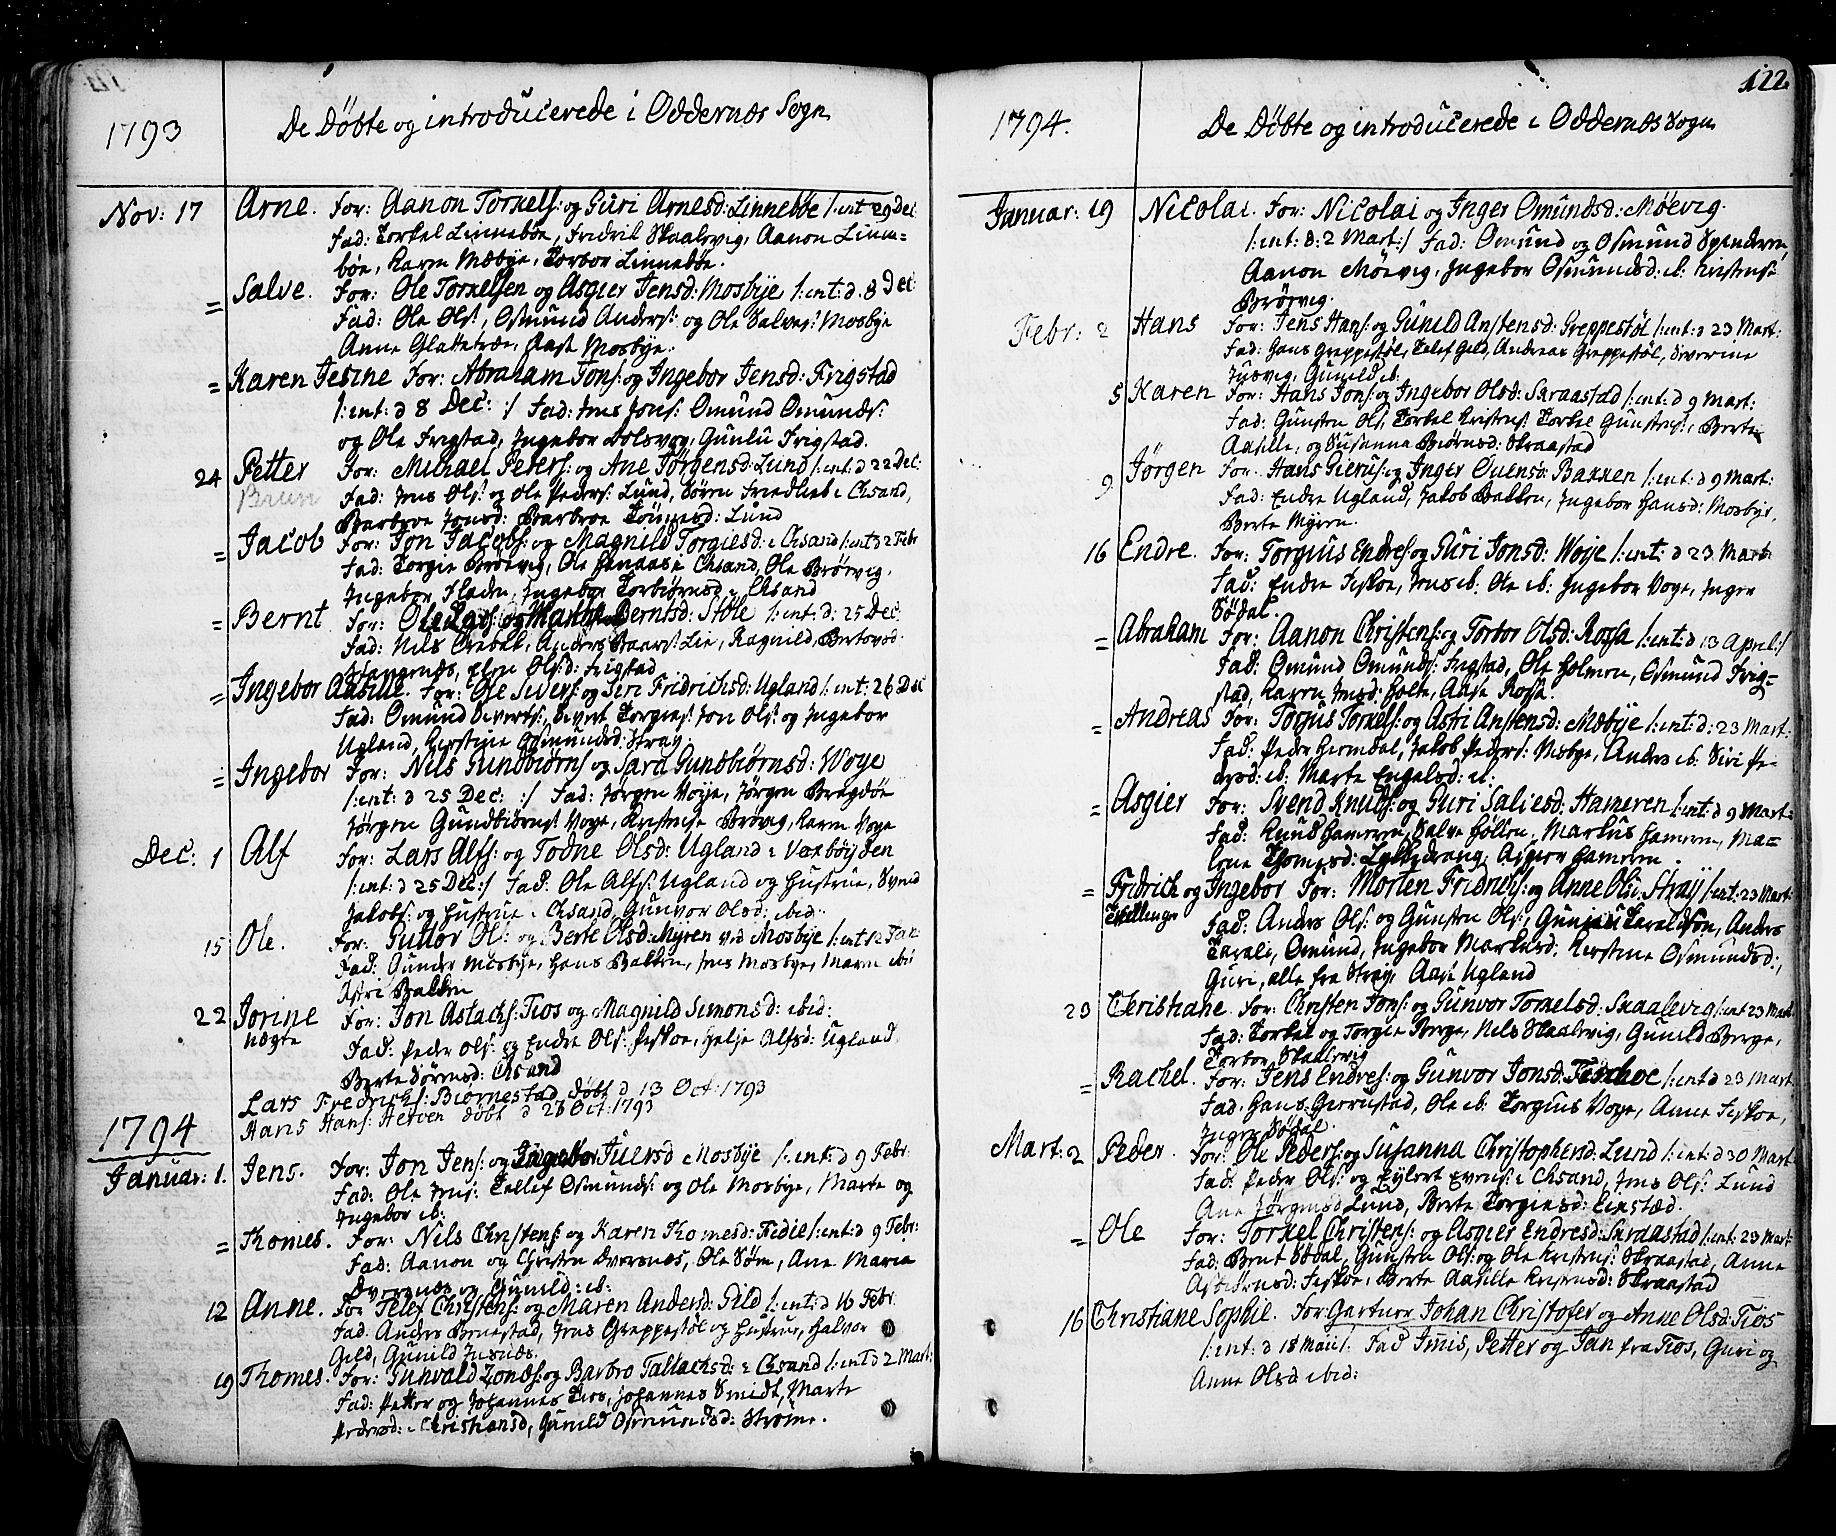 1793
De Döbte og introducerede i Oddernæs Sogn
Nov: 17 Arne. For: Aanon Torkels: og Guri Arnesd: Linnebøe /: int: 29 Dec:
Fad: Torkel Linnebøe, Fridrik Skaalevig, Aanon Linne=
bøe, Karen Mæbye, Torbor Linnebøe.
= Salve. For: Ole Torkelsen og Asgier Jensd: Mosbye /: int: d 8 Dec:
Fad: Ole Ols:, Osmund Anders: og Ole Salves: Mosbye
Anne Glattetræe, Aase Mosbye.
= Karen Jesine For: Abraham Jons: og Ingebor Jensd: Frigstad
/: int: d 8 Dec: :/ Fad: Jens Jons: Omund Omunds:
og Ole Frigstad, Ingebor Dolsvog, Gunlu Frigstad.
24 Petter For: Michael Peders: og Ane Jörgensd: Lund /: int: d 22 Dec:
Brun Fad: Jens Ols: og Ole Peders: Lund, Sören Friedlieb i Chsand,
Barbroe Jonsd: Barbroe Tönnesd: Lund
= Jacob For: Jon Jacobs: og Magnild Torgiesd: i Chsand /: int d 2 Febr
Fad: Torgie Bröevig, Ole Hanaas i Chsand, Ole Brövig,
Ingebor Fladen, Ingebor Torbiörnsd i Chsand
= Bernt For: Ole Lars: og Marthe Berntsd: Stöle /: int: d: 25 Dec:
Fad: Nils Anders Lie, Ragnild
Elen Olsd: Frigstad
= Ingebor Aasille. For: Ole Sivers: og Siri Fridrichsd: Ugland /: int: 26 Dec
Fad: Omund Siverts:, Sivert Torgies: Jon Ols: og Ingebor
Ugland, Kirstine Osmundsd: Stray.
= Ingebor For: Nils Gundbiörns og Sara Gundbiörnsd: Voye
/: int: d 25 Dec: :/ Fad: Jörgen Voye, Jörgen Bregdöe
Jörgen Gundbiörns: Voye, Kristense Brövig, Karen Voye
Dec: 1 Alf For: Lars Alfs: og Todne Olsd: Ugland i Vexböyden
/: int: d 25 Dec :/ Fad: Ole Alfs: Ugland og Hustrue, Svend
Jakobs: og Hustrue i Chsand, Gunvor Olsd: ibid:
15 Ole. For: Guttor Ols: og Berte Olsd: Myren vid Mosbye /: int 12 Jan:
Fad: Gunder Mosbye, Hans Bakken, Jens Mosbye, Maren ibid
Astri Bakken
22 Jorine For: Jon Aslachs: Tios og Magnild Simonsd: ibid:
uægte Fad: Peder Ols: og Endre Ols: Feskoe, Helje Alfsd: Ugland
Berte Chsand
Lars Fredrichs: Biörnestad döbt d 13 Oct: 1793
Hans Hans: Herven döbt d 28 Oct: 1793
1794
Januar: 1. Jens. For: Jon Jens: og Ingebor Juersd Mosbye /: int: d 9 Febr:
Fad: Ole Jens: Tellef Osmunds: og Ole Mosbye, Marte og
Ingebor ib:
= Thomes. For: Nils Christens: og Karen Thomesd: Fidie /: int: d 9 Febr:
Fad: Aanon og Christen Dversnes, Ole Söm, Ane Maria
Dversnes og Gunild: ib:
12 Anne. For Telef Christens: og Maren Andersd: Gild /: int: d 16 Febr.
Fad: Anders Brnestad, Jens Greppestöl og Hustrue, Halvor
Gild, Gunild Jusnes.
19 Thomes. For: Gunvald Zonds: og Barbro Tallachsd: i Chsand /: int d 2 Mart:
Fad: Petter og Johannes Tios, Johannes Smidt, Marte
Pedersd: i Christiansd, Gunild Osmundsd: Ströme.
122.
1794.
De Döbte og introducerede i Oddernæs Sogn
Januar: 19 Nicolai. For: Nicolai og Inger Omundsd: Möevig.
/: int: d: 2 Mart :/ Fad: Omund og Osmund
Aanon Möevig, Ingebor Osmundsd: ib: Kristense
Brövig.
Febr: 2 Hans For: Jens Hans: og Gunild Anstensd: Greppestöl /: int: d 23 Mart:
Fad: Hans Greppestöl, Telef Gild, Andreas Greppestöl, Siverine
Jusvig, Gunild ib.
5 Karen For: Hans Jons: og Ingebor Olsd: Skraastad /: int. d 9 Mart:
Fad: Gunsten Ols, Torkel Kristens: Torkel Gunstens:, Berte
Aasille, og Susanna Biörnsd: Skraastad
9 Jörgen For: Hans Gieruls: og Inger Ouensd: Bakken /: int: d 9 Mart:
Fad: Endre Ugland, Jakob Bakken, Ingebor Hansd: Mosbye,
Berte Myren.
16 Endre. For: Torgius Endres: og Guri Jonsd: Voje /: int: d 23 Mart:
Fad: Endre Feskoe, Jens ib: Ole ib: Ingebor Voye, Inger
Södal
= Abraham For: Aanon Christens: og Torbor Olsd: Rossa /: int: d 13 April :/
Fad: Omund Omunds: Frigstad, Ole Holmen, Osmund Frig=
stad, Karen Jensd: Holte, Aase Rossa.
= Andreas For: Torjus Torkels: og Astri Anstensd: Mæbye /: int: d: 23 Mart:
Fad: Peder Hemdal, Jakob Peders: Mæbye, Anders ib: Siri Pe-
dersd: ib. Marte Engelsd: ib:
= Asgier For: Svend Knuds: og Guri Saliesd: Hameren /: int: d 9 Mart:
Fad: Knud Hameren, Salve Hölten, Markus Hameren, Ma=
lene Thomesd: Lykkedrang, Asgier Hameren.
= Fridrich og Ingebor For: Morten Fridrichs: og Anne Olsd: Straij /: int: 23 Mart:
Tvillinge Fad: Anders Ols: og Gunsten Ols:, Gunuu Taraldsen, Anders
Tarald:, Omund, Ingebor Markusd: Kirstine Osmundsd:,
Guri, alle fra Stray, Aase Ugland
23 Christiane. For: Christen Jons: og Gunvor Torkelsd: Skaalevig /: int 23 Mart:
Fad: Torkel og Torgie Berge, Nils Skaalevig, Gunild Berge,
Torbor Skaalevig
= Rachel. For: Jens Endres: og Gunvor Jonsd: Feskoe /: int d 23 Mart:
Fad: Hans Gierrustad, Ole ib: Torgius Voye, Anne Feskoe,
Inger Södal.
Mart: 2 Peder. For: Ole Peders: og Susanna Christophersd: Lund /: int: d 30 Mart:
Fad: Peder Ols: og Eylert Evens: i Chsand, Jens Ols: Lund
Ane Jörgensd Lund, Berte Torgiesd: Einstæd.
= Ole For: Torkel Christens: og Asgier Endresd: Skraastad /: int: 23 Mart:
Fad: Bent Södal, Gunsten Ols: og Ole Kristens: Skraastad, Anne
Feskoe, Berte Aasille Kristensd: Skraastad
16 Christiane Sophie. For: Gartner Johan Christofer og Anne Olsd: Tios
/: int: d 18 Maii /. Fad Jmis, Petter og Jan fra Tios, Guri og
Anne Olsd ibid: